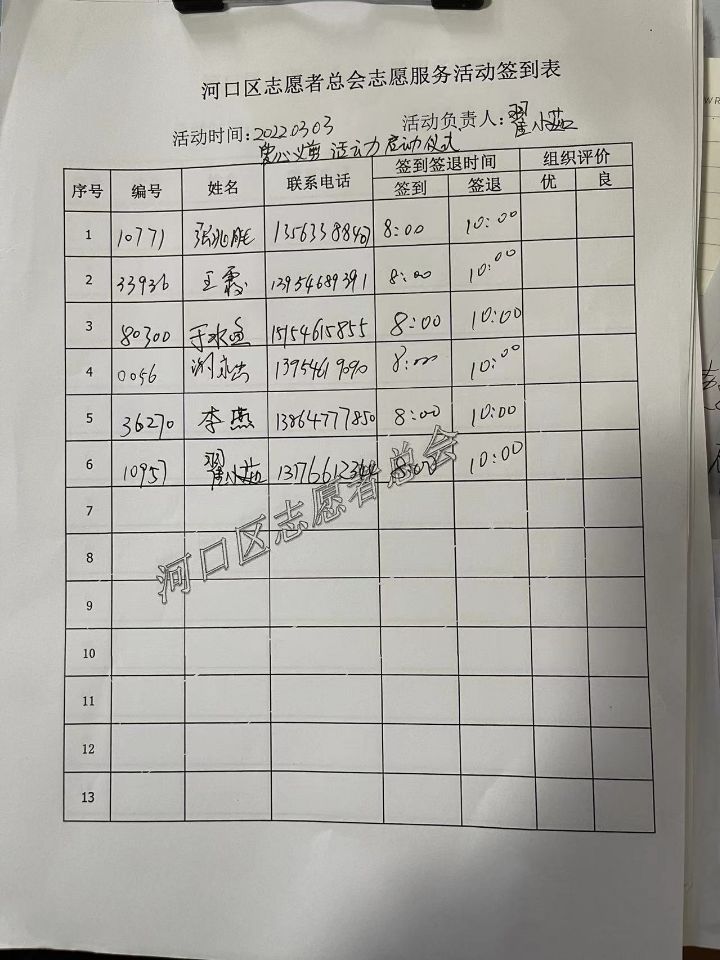 河口区志愿者总会志愿服务活动签到表
活动时间:20220303 活动负责人:翟小茹
爱心义剪 活动启动仪式
序号 编号 姓名 联系电话 签到签退时间 组织评价
签到 签退 优 良
1 10771 张兆胜 8:00 10:00
2 33936 王霞 13954689391 8:00 10:00
3 80300 15154615855 8:00 10:00
4 0056 13954619090 8:00 10:00
5 36270 李燕 13864777850 8:00 10:00
6 10957 翟小茹 10:00
7
8
9
10
11
12
13
河口区志愿者总会